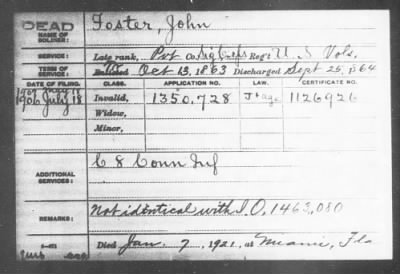 DEAD
NAME OF SOLDIER: Foster, John
SERVICE: Late rank, Pvt Co. Sig Corps Reg't U.S. Vols.
TERM OF SERVICE: Enlisted Oct 13, 1863 Discharged Sept 25, 1864
DATE OF FILING. CLASS. APPLICATION NO. LAW. CERTIFICATE NO.
1906 July 18 Invalid, 1350,728 1126926
Widow,
Minor,
ADDITIONAL SERVICES: C 8 Conn Inf
REMARKS: Not identical with I.O. 1463,080
Died Jan. 7, 1921, at Miami, Fla